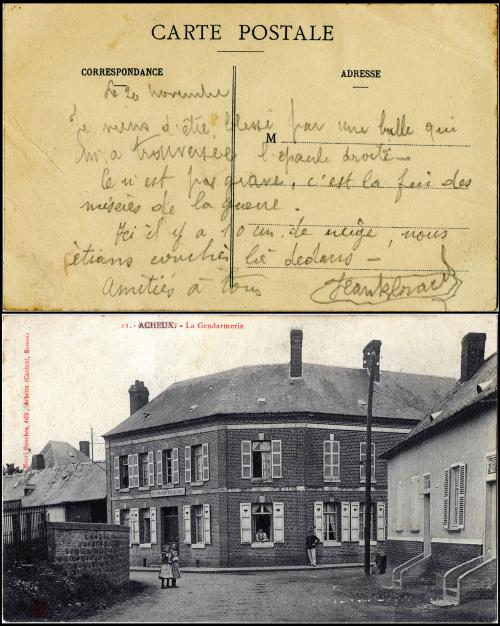 CARTE POSTALE
CORRESPONDANCE
ADRESSE
M
Le 20 novembre
Je viens d'être blessé par une balle qui
m'a traversée l'épaule droite -
Ce n'est pas grave, c'est la fin des
misères de la guerre -
Ici il y a 10 cm. de neige, nous
étions couchés là dedans -
Amitiés à tous
Jean
21. - ACHEUX. - La Gendarmerie
édit., Acheux (Canton), Somme